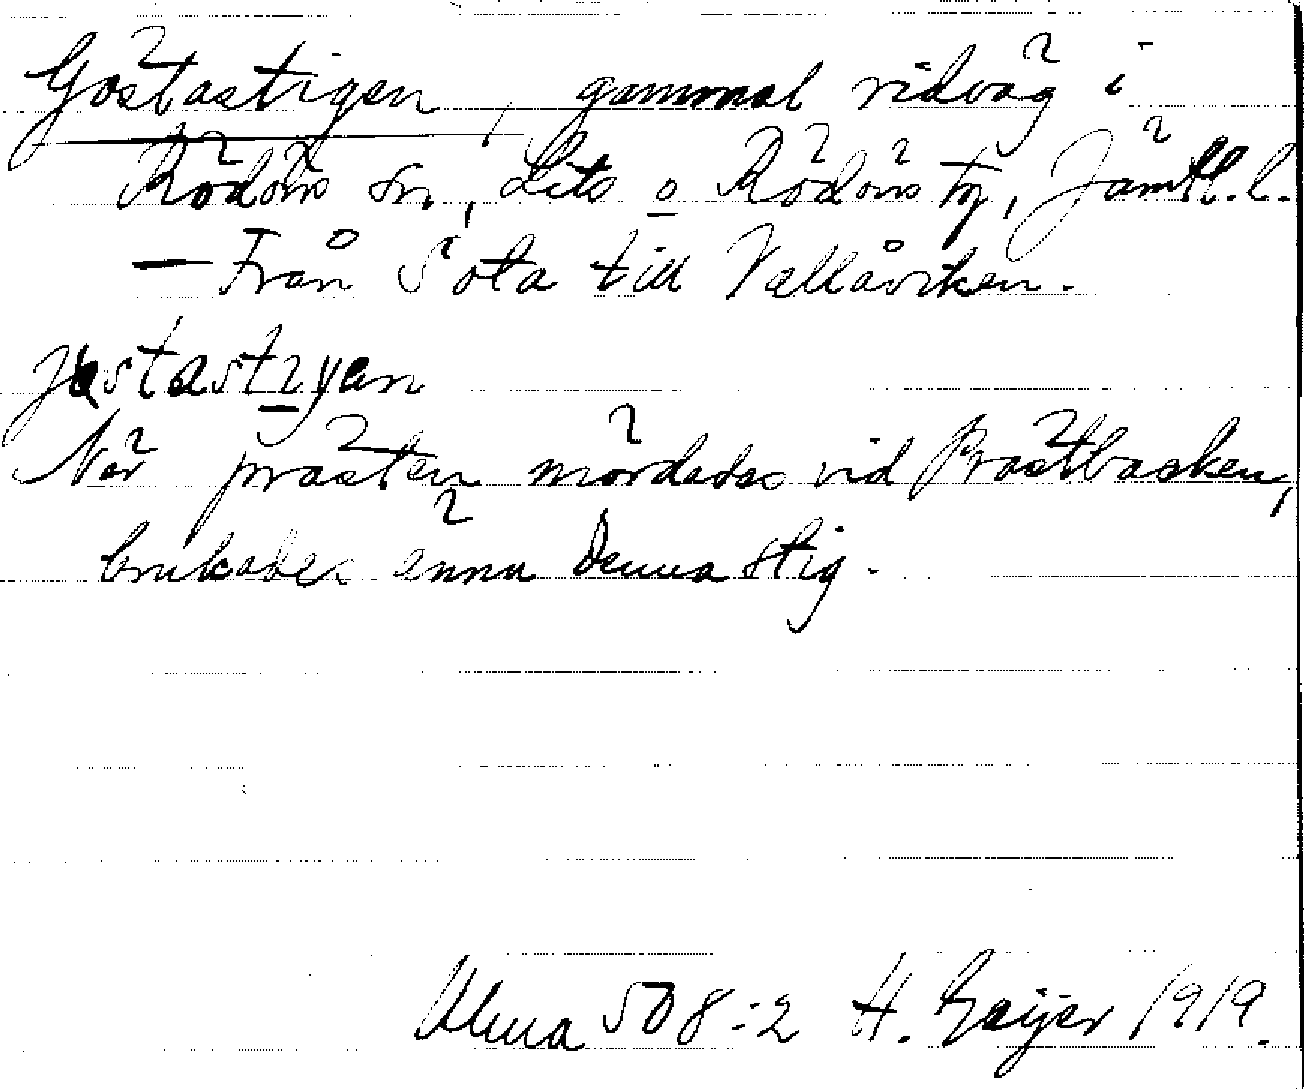 Göstastigen, gammal ridväg i
Rödöns sn, Lits o Rödöns tg, Jämtl. l.
— Från Sota till Vallåviken.
När prästen mördades vid Prästbacken,
brukades ännu denna stig.
Ulma 508:2 H. Geijer 1919.